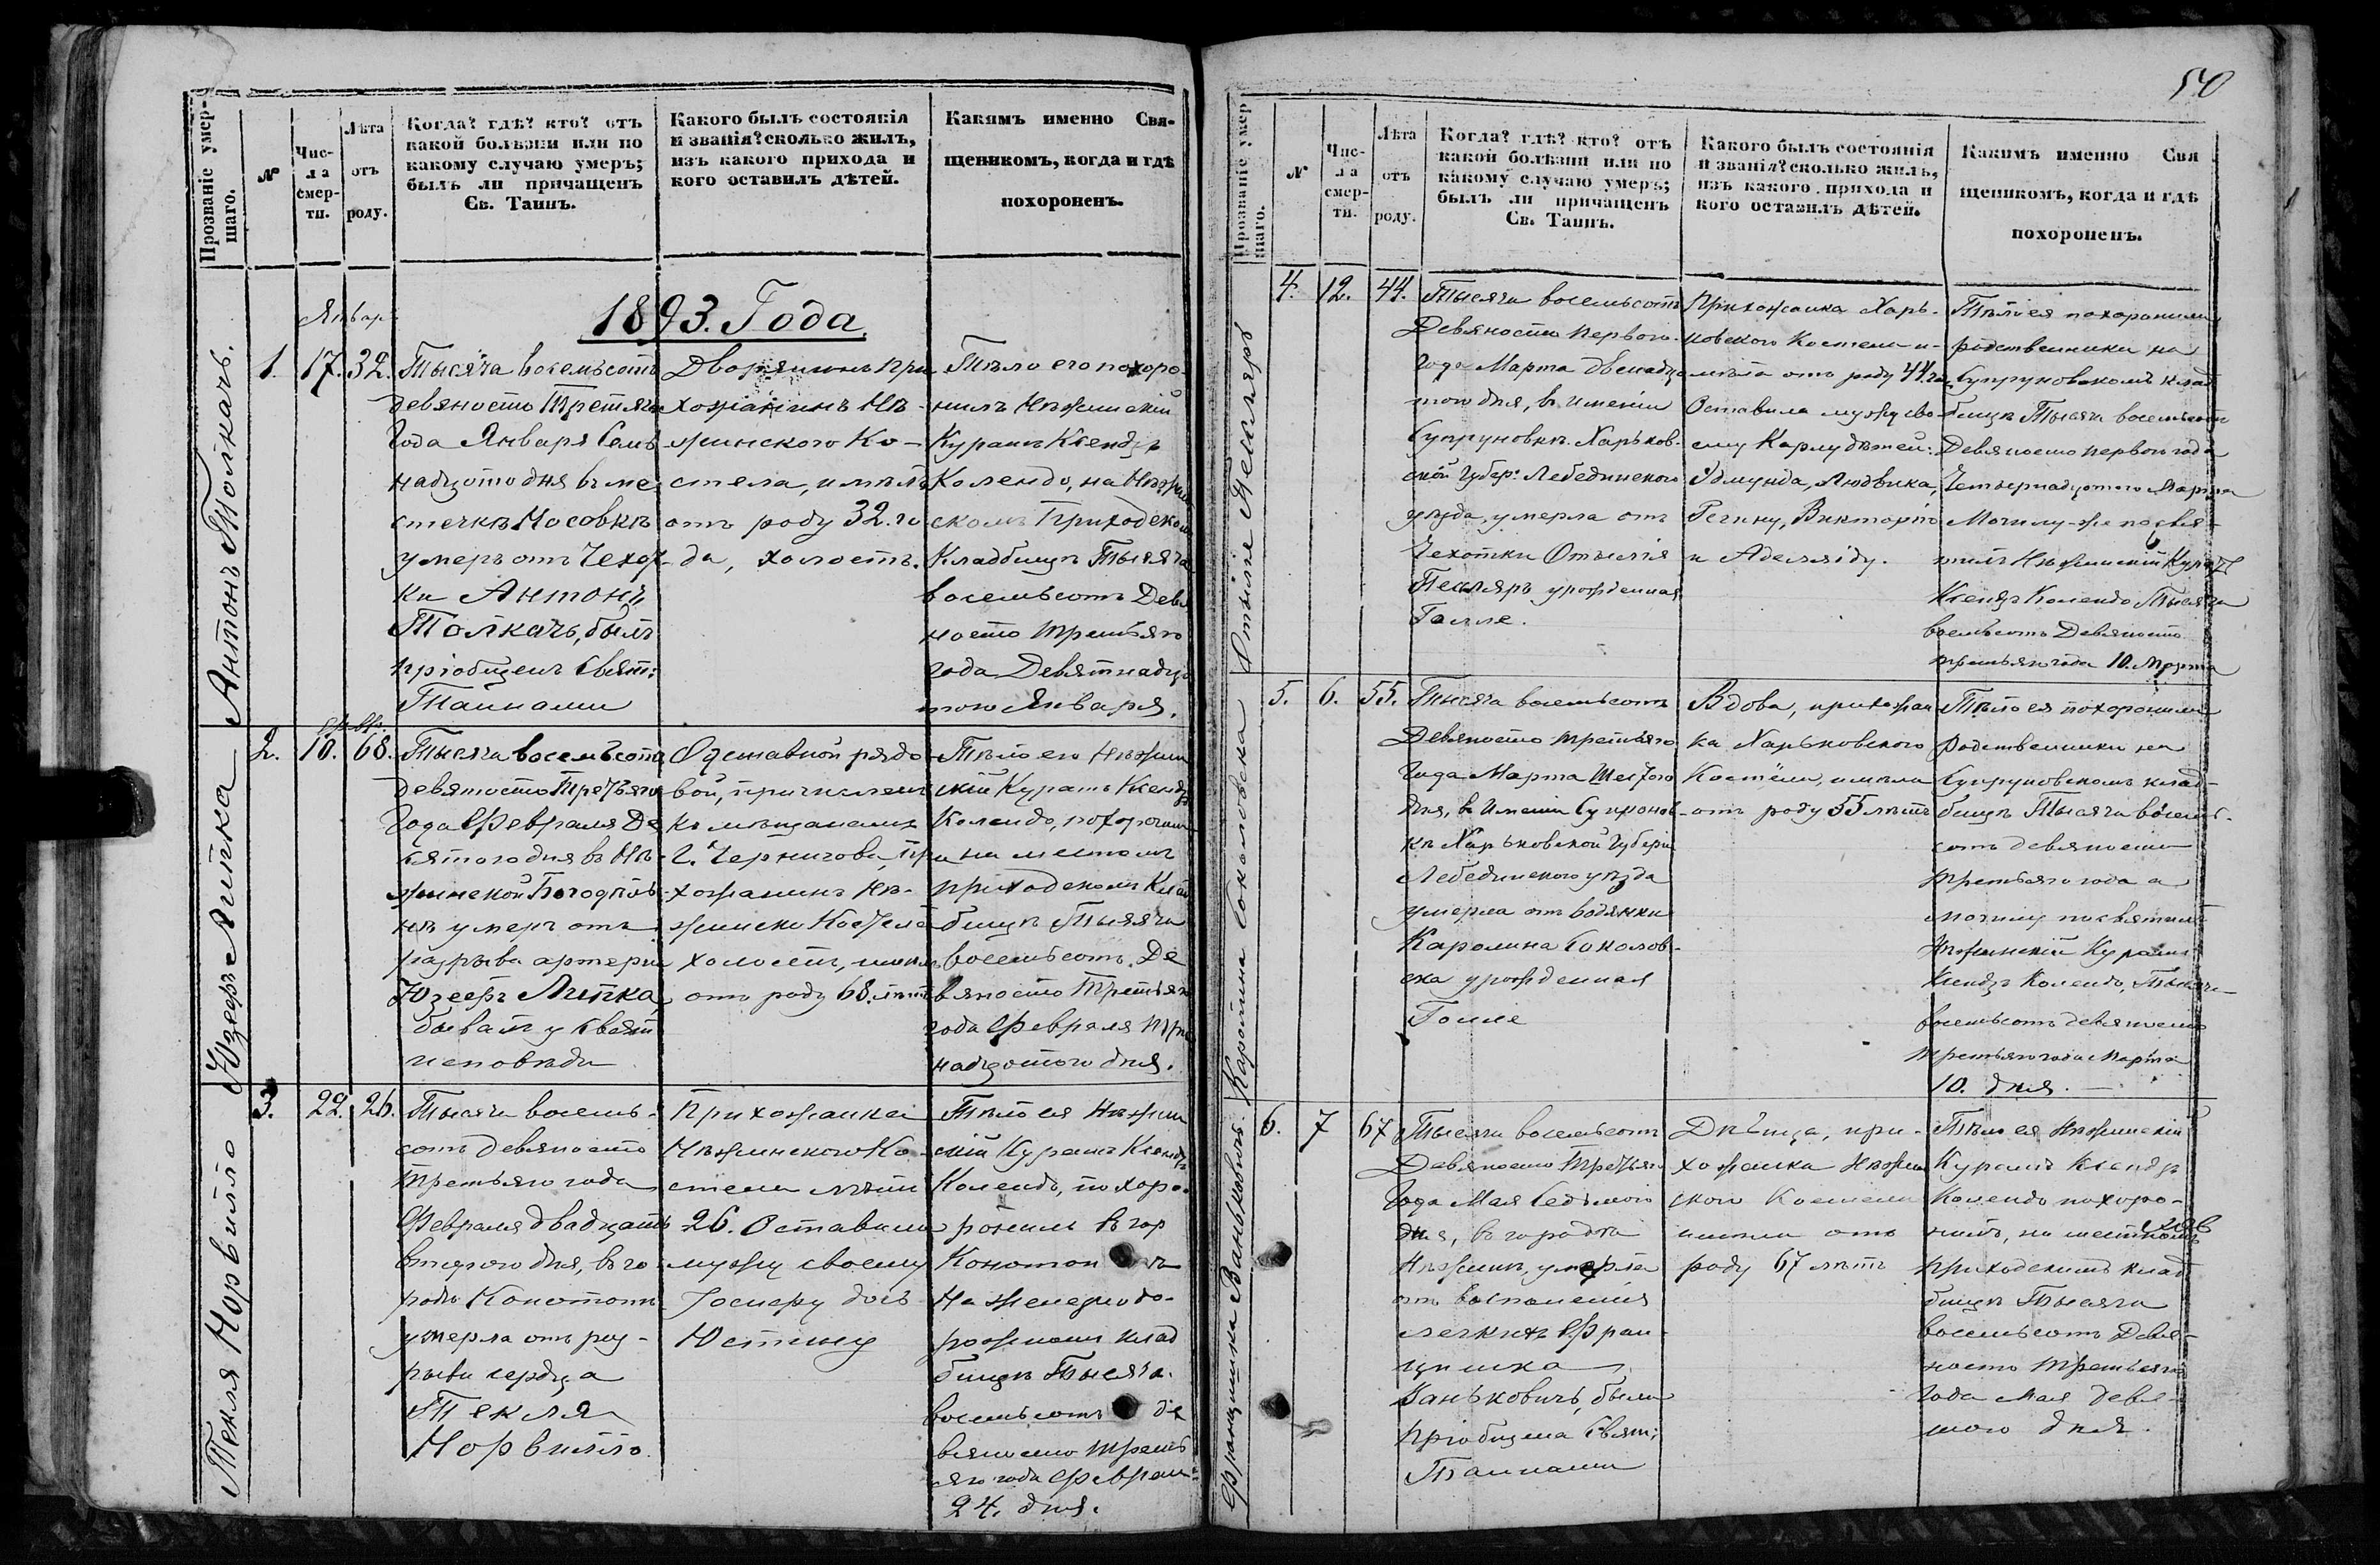 50
Прозваніе умер-
шаго.
№
Чис-
ла
смер-
ти.
Лѣта
отъ
роду.
Когда? гдѣ? кто? отъ
какой болѣзни или по
какому случаю умеръ;
былъ ли причащенъ
Св. Таинъ.
Какого былъ состоянія
и званія? сколько жилъ,
изъ какого прихода и
кого оставилъ дѣтей.
Какимъ именно Свя-
щеникомъ, когда и гдѣ
похороненъ.
1893. Года
Январ
Антонъ Толкачъ.
1.
17.
32.
Тысяча восемьсотъ
девяносто Третяго
Года Января Семь
надцотого дня въ ме
стечкѣ Носовкѣ
умеръ отъ Чехот
ки Антонъ
Толкачъ, былъ
пріобщенъ Свят:
Тайнами
Дворянинъ при
хожанинъ Нѣ-
жинского Ко-
стела, имѣлъ
отъ роду 32. го
да, холостъ.
Тѣло его похоро-
нилъ Нѣжинскій
Куратъ Ксендзъ
Колендо, на Нѣжин
скомъ Приходском
Кладбищѣ Тысяча
восемьсотъ Девя
носто третьяго
года Девятнадца
того Января.
Юзефъ Липка
2.
Февр.
10.
68.
Тысяча восемьсотъ
девяносто Третьяго
Года Февраля Де
сятого дня въ Нѣ-
жинской Богодѣль
нѣ умеръ отъ
разрыва артери
Юзефъ Липка,
бывалъ у Свят
исповѣди
Отставной рядо
вой, причислен
къ мѣщанамъ
Г. Чернигова, При
хожанинъ Нѣ-
жинско Костела
холостъ, имѣлъ
отъ роду 68. лѣтъ
Тѣло его Нѣжин
скій Куратъ Ксендз
Колендо, похоронил
на местномъ
приходскомъ Клад
бищѣ Тысяча
восемьсотъ Де
вяносто Третьяго
года Февраля Три
надцотого дня.
Текля Норвилло
3.
22.
26.
Тысяча восемь-
сотъ девяносто
Третьяго года
Февраля двадцать
второго дня, въ го
родѣ Конотопѣ
умерла отъ раз-
рыва сердца
Текля
Норвилло.
Прихожанка
Нѣжинского Ко-
стела лѣтъ
26. Оставила
мужу своему
дочь
Юстину
Тѣло ея Нѣжин
скій Куратъ Ксендзъ
Колендо, похоро-
ронилъ въ гор
Конотопѣ
На железнодо-
рожномъ клад
бищѣ Тысяча
восемьсотъ де
вяносто Треть
яго года Феврал
24. дня.
Отыліе Пекляръ
4.
12.
44.
Тысяча восемьсотъ
Девяносто первого
Года Марта двенадца
того дня, в имѣніи
Супруновкѣ Харьков-
ской Губер: Лебединского
уезда, умерла отъ
Чехотки Отылія
Пекляръ урожденная
Голле.
Прихожанка Харь-
ковского Костела и-
мѣла отъ роду 44. го
Оставила мужу сво
ему Карлу дѣтей:
Эдмунда, Людвика,
Регину, Викторію
и Аделяіду.
Тѣло ея похоронили
родственники на
Супруновскомъ клад
бищѣ Тысяча восемьсотъ
Девяносто первого года
Четырнадцотого Марта
Могилу-же посвя-
тилъ Нѣжинскій Куратъ
Ксендз Колендо Тысяча
восемьсотъ Девяносто
третьяго года 10. Марта
Каролина Соколовска
5.
6.
55.
Тысяча восемьсотъ
Девяносто третьяго
Года Марта Шестого
дня, в Имѣніи Супронов-
кѣ Харьковской Губерни
Лебединского уѣзда
умерла отъ водянки
Каролина Соколов-
ска урожденная
Голле
Вдова, прихожан
ка Харьковского
Костёла, имѣла
отъ роду 55 лѣтъ
Тѣло ея похоронили
родственники на
Супруновскомъ клад-
бищѣ Тысяча восемь-
сотъ девяносто
третьяго года а
могилу посвятилъ
Нѣжинскій Куратъ
Ксендзъ Колендо, Тысяча-
восемьсотъ девяносто
третьяго года Марта
10. дня.
Францишка Ваньковичъ
6.
7
67
Тысяча восемьсотъ
Девяносто Третьяго
Года Мая Седьмого
дня, въ городѣ
Нѣжинѣ, умерла
отъ воспаленія
легкихъ Фран-
цишка
Ваньковичъ, была
пріобщена Свят:
Тайнами
Дѣвица, при-
хожанка Нѣжин
ского Костела
имѣла отъ
роду 67 лѣтъ
Тѣло ея Нѣжинскій
Куратъ Ксендзъ
Колендо похоро-
нилъ, на местномъ
приходскомъ клад
бищѣ Тысяча
восемьсотъ Девя-
носто третьяго
Года Мая девя-
того дня.